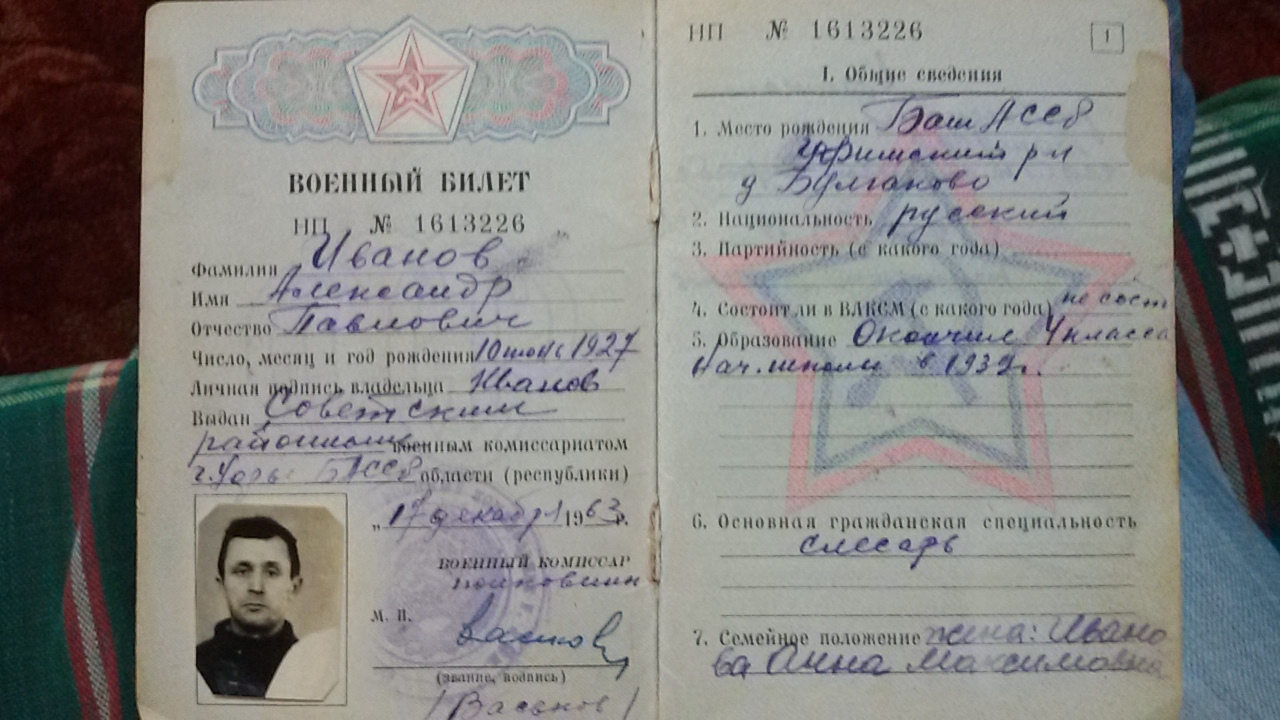 ВОЕННЫЙ БИЛЕТ
НП № 1613226
Фамилия Иванов
Имя Александр
Отчество Павлович
Число, месяц и год рождения 10 1927
Личная подпись владельца Иванов
Выдан Советским
районным военным комиссариатом
г. Уфы БАССР области (республики)
„17 декабря 1963 г.
ВОЕННЫЙ КОМИССАР
полковник
М. П.
(звание, подпись)
/Васьков/
НП № 1613226
1
I. Общие сведения
1. Место рождения Баш АССР
Уфимский р-н
д Булгаково
2. Национальность русский
3. Партийность (с какого года)
4. Состоит ли в ВЛКСМ (с какого года) не сост
5. Образование Окончил 4 класса
Нач. школы в 1939г.
6. Основная гражданская специальность
слесарь
7. Семейное положение жена: Ивано
ва Анна Максимовна